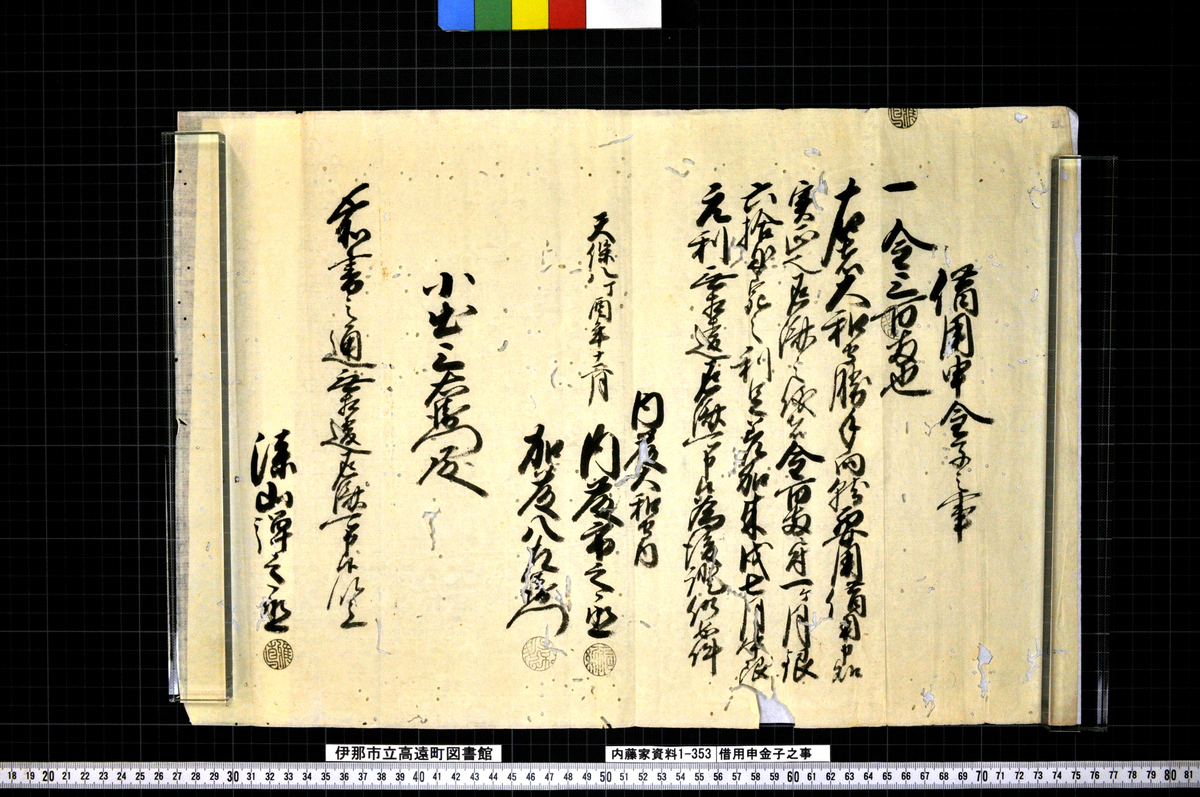 借用申金子之事
一 金三百両也
右者大和守勝手向就要用借用申処
実正也返済之儀者金百両ニ付一ヶ月銀
六拾匁宛之利足差加来戌七月中限
元利無相違返済可申候為後証仍如件
内藤大和守内
天保八丁酉年十二月 内藤市之丞
加藤八左衛門
小出三右衛門殿
表書之通無相違返済可申候以上
深山弾之丞
伊那市立高遠町図書館
内藤家資料1-353 借用申金子之事